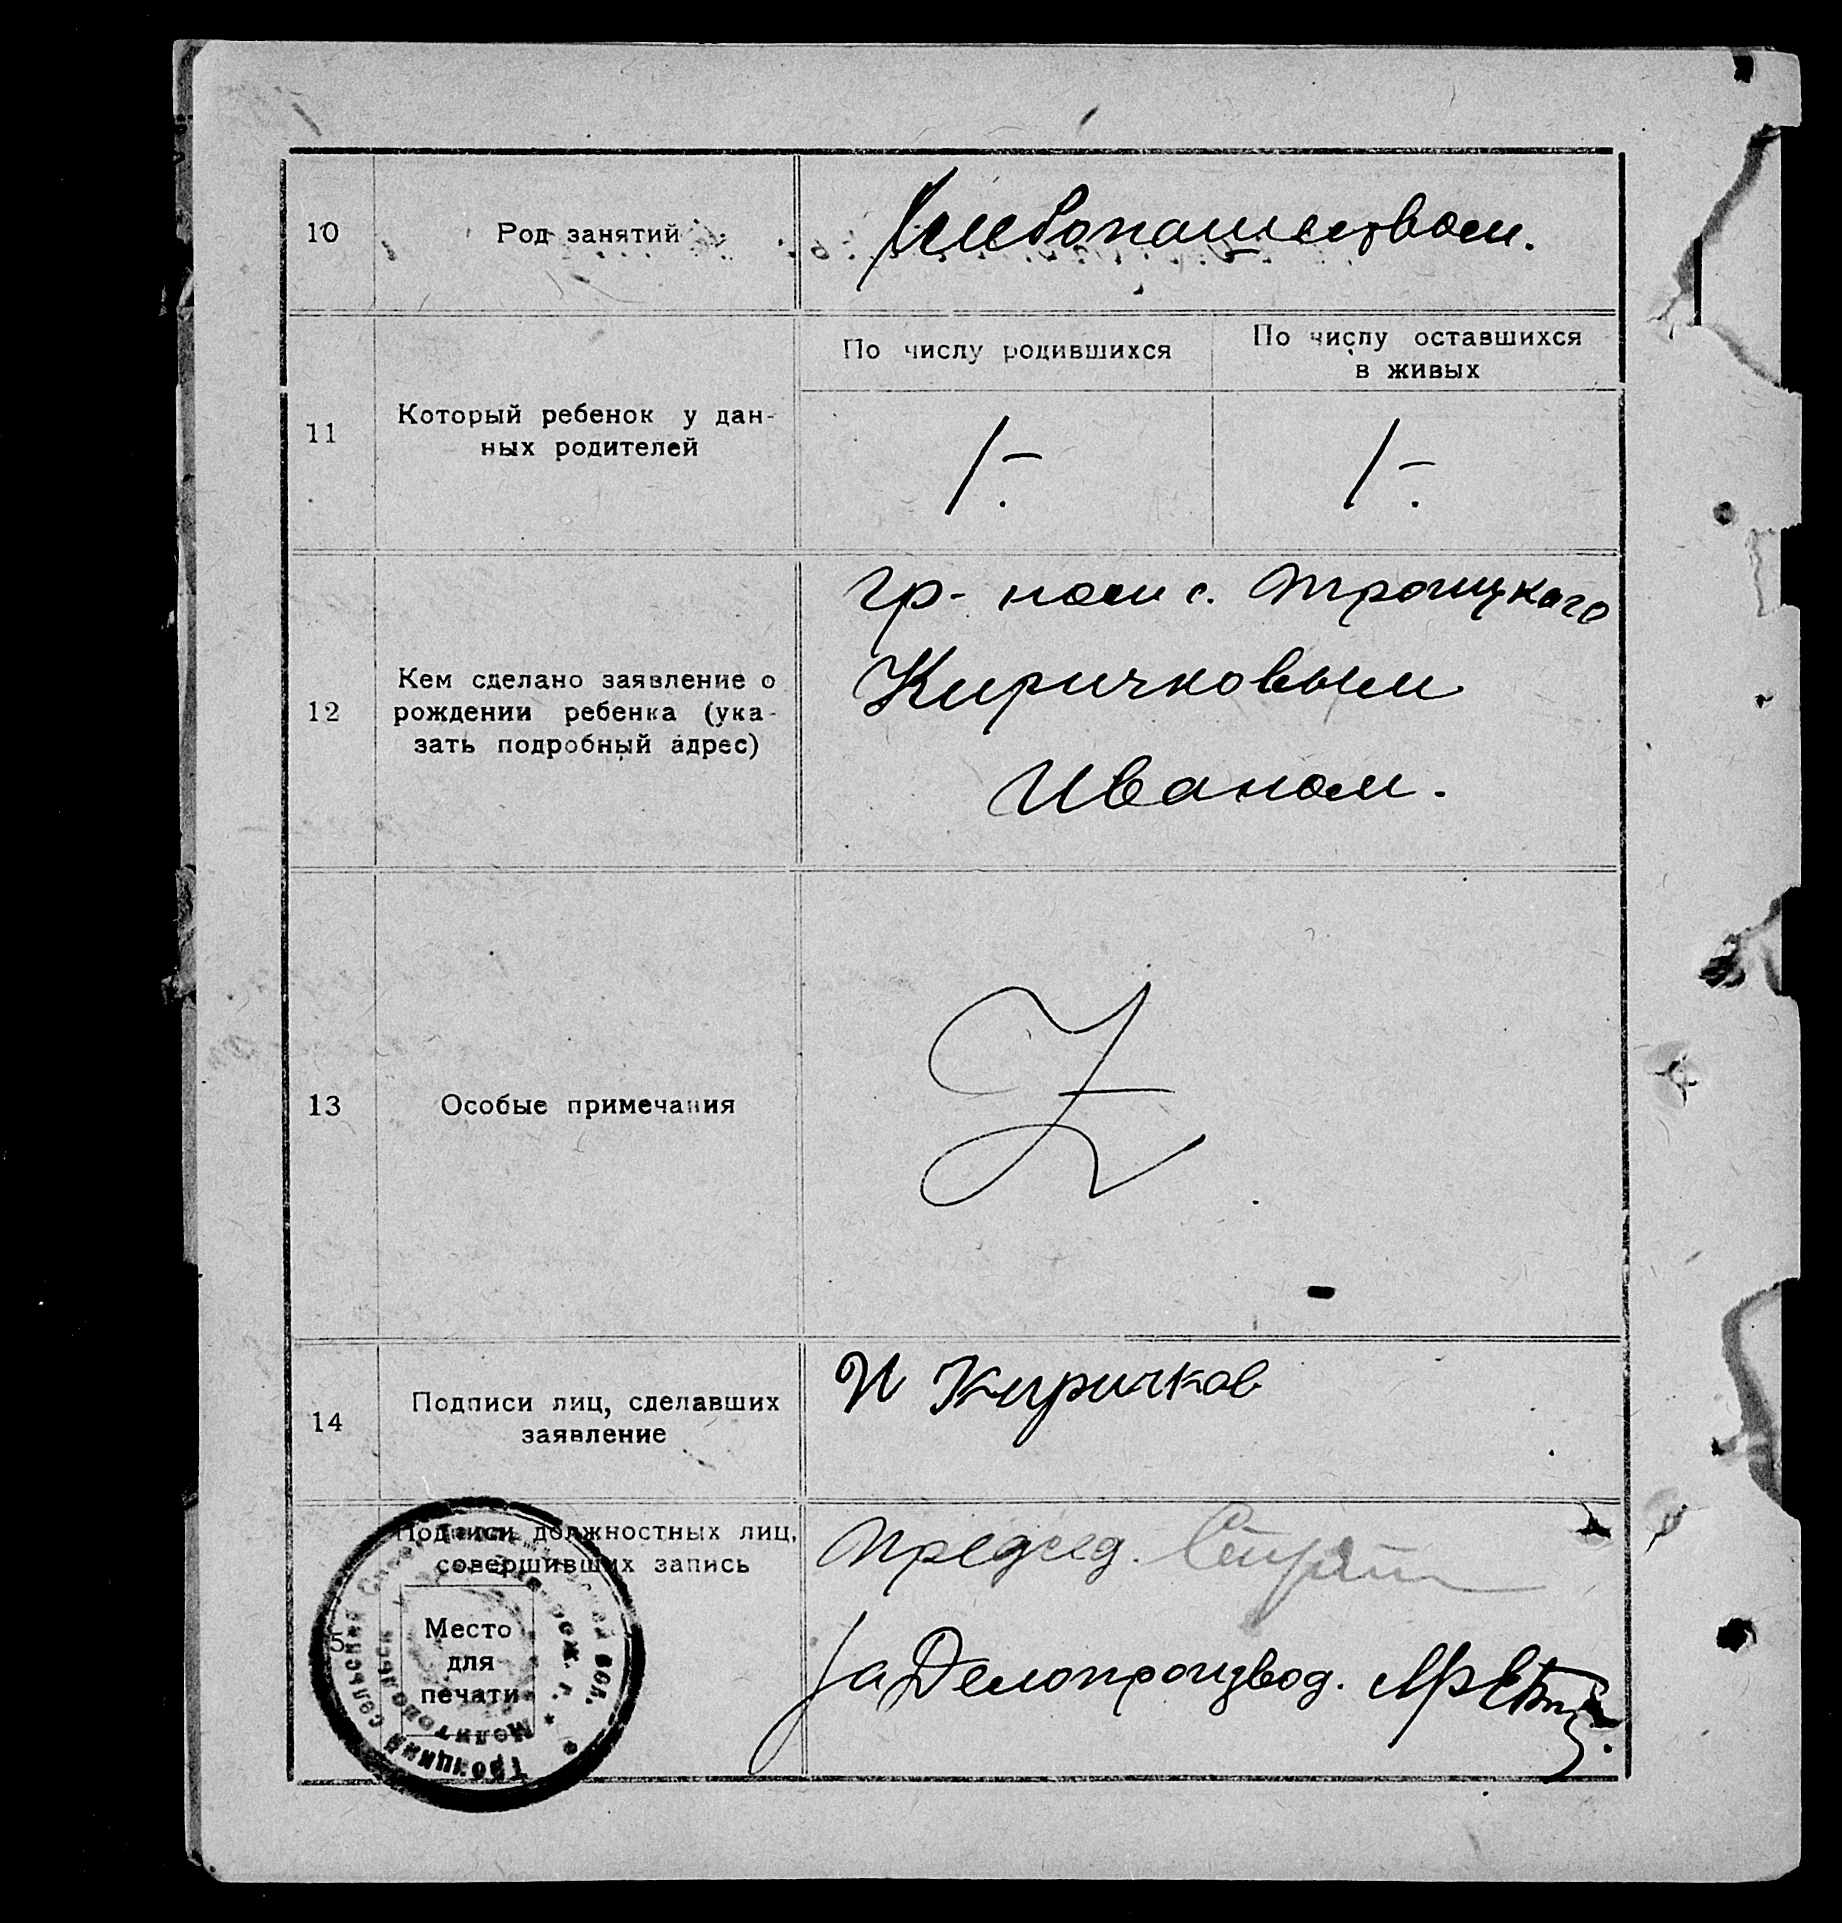 10
Род занятий
Хлебопашеством.
11
Который ребенок у дан-
ных родителей
По числу родившихся
По числу оставшихся
в живых
1-.
1-.
12
Кем сделано заявление о
рождении ребенка (ука-
зать подробный адрес)
Гр-ном с. Троицкого
Киричковым
Иваном.
13
Особые примечания
Z
14
Подписи лиц, сделавших
заявление
И Киричков
5
Подписи должностных лиц,
совершивших запись
Место
для
печати
Троицкий сельский
вол.
Мелитопольск
г.
Председ.
За Делопроизвод.